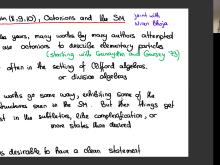 in(8,9,10), Octonions and the SM
joint with
Niren Bhoja
e years, many works by many authors attempted
use octonions to describe elementary particles
(starting with Gunaydin and Gursey 73)
often in the setting of Clifford algebras
or division algebras
works go some way, exhibiting some of the
structures seen in the SM. But then things get
st in the subtleties, like complexification, or
more states than desired
is desirable to have a clean statement